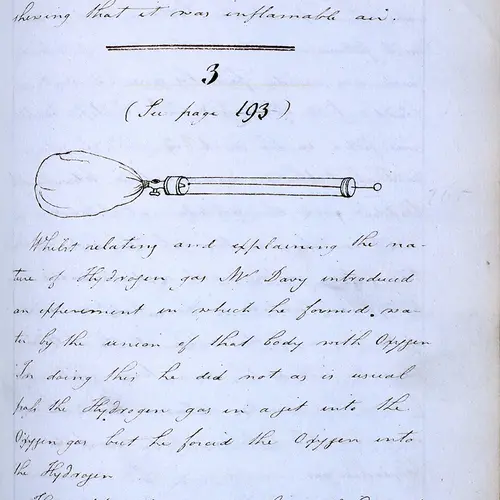 shewing that it was inflamable air.
3
(See page 193)
Whilst relating and explaining the na-
ture of Hydrogen gas Mr. Davy introduced
an experiment in which he formed wa-
ter by the union of that body with Oxygen
In doing this he did not as is usual
pass the Hydrogen gas in a jet into the
Oxygen gas but he forced the Oxygen into
the Hydrogen